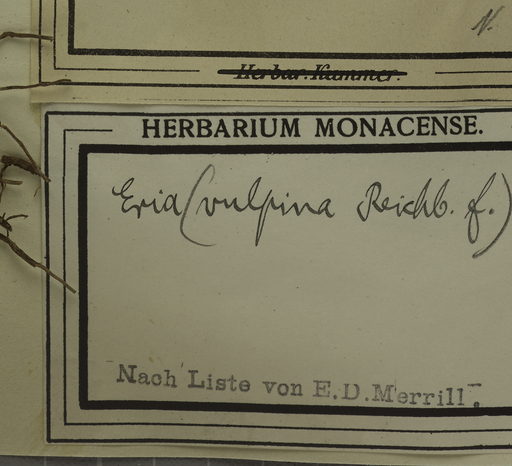 Herbar. Kummer.
HERBARIUM MONACENSE.
Eria (vulpina Reichb. f.)
Nach Liste von E.D.Merrill.